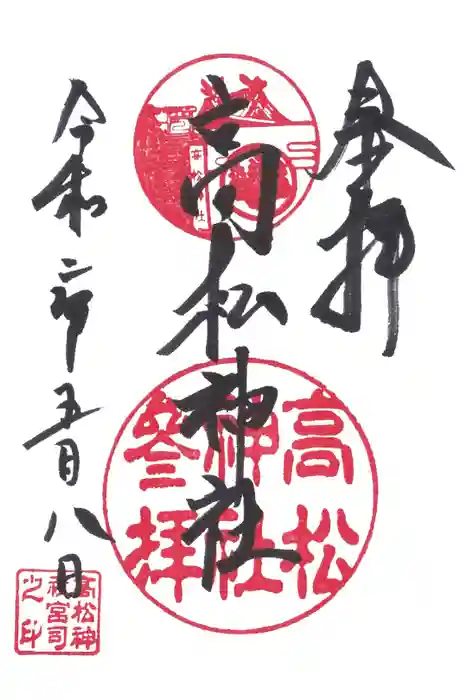 奉拝
高松神社
令和二年五月八日
高松
神社
參拝
高松神社
高松神
社宮司
之印